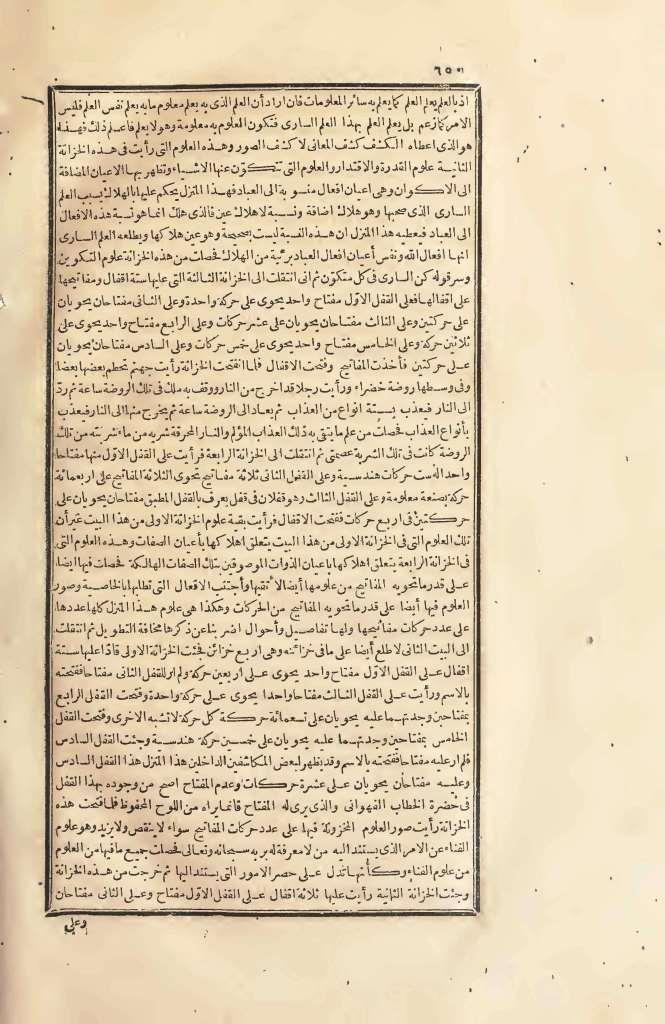 ٦٥
اذ بالعلم يعلم العلم كما يعلم به سائر المعلومات فان اراد أن العلم الذى به يعلم معلوم ما به يعلم نفس العلم فليس
الامر كما زعم بل يعلم العلم بهذا العلم السارى فتكون المعلوم به معلومة وهو لا يعلم فاعلم ذلك فهذا
هو الذى اعطاه الكشف كشف المعانى لا كشف الصور وهذه العلوم التى رأيت فى هذه الخزانة
الثانية علوم القدرة والاقتدار والعلوم التى تتكون عنها الاشياء وتظهر بها الاعيان المضافة
الى الاكوان وهى اعيان افعال منسوبة الى العباد فهذا المنزل يحكم عليها بالهلاك بسبب العلم
السارى الذى صحبها وهو هلاك اضافة ونسبة لا هلاك عين فالذى هلك انما هو نسبة هذه الافعال
الى العباد فيعطيه هذا المنزل ان هذه النسبة ليست بصحيحة وهو عين هلاكها ويطلعه العلم السارى
انها افعال الله ونفس أعيان افعال العباد بريئة من الهلاك فحصلت من هذه الخزانة علوم التكوين
وسر قوله كن السارى فى كل متكون ثم انى انتقلت الى الخزانة الثالثة التى عليها ستة اقفال ومفاتيحها
على اقفالها فعلى القفل الاول مفتاح واحد يحوى على حركة واحدة وعلى الثانى مفتاحان يحويان
على حركتين وعلى الثالث مفتاحان يحويان على عشر حركات وعلى الرابع مفتاح واحد يحوى على
ثلاثين حركة وعلى الخامس مفتاح واحد يحوى على خمس حركات وعلى السادس مفتاحان يحويان
على حركتين فأخذت المفاتيح وفتحت الاقفال فلما انفتحت الخزانة رأيت جهنم تحطم بعضها بعضا
وفى وسطها روضة خضراء ورأيت رجلا قد اخرج من النار ووقف به ملك فى تلك الروضة ساعة ثم ردّ
الى النار فيعذب بستة انواع من العذاب ثم يعاد الى الروضة ساعة ثم يخرج منها الى النار فيعذب
بأنواع العذاب فحصلت من علم ما يتقى به ذلك العذاب المؤلم والنار المحرقة شربه من ماء شربته من تلك
الروضة كانت فى تلك الشربة عصمتى ثم انتقلت الى الخزانة الرابعة فرأيت على القفل الاول منها مفتاحا
واحدا له ست حركات هندسية وعلى القفل الثانى ثلاثة مفاتيح تحوى الثلاثة المفاتيح على اربعمائة
حركة بصنعة معلومة وعلى القفل الثالث وهو قفلان فى قفل يعرف بالقفل المطبق مفتاحان يحويان على
حركتين فى اربع حركات ففتحت الاقفال فرأيت بقية علوم الخزانة الاولى من هذا البيت غير أن
تلك العلوم التى فى الخزانة الاولى من هذا البيت يتعلق اهلاكها بأعيان الصفات وهذه العلوم التى
فى الخزانة الرابعة يتعلق اهلاكها باعيان الذوات الموصوفين بتلك الصفات الهالكة فحصلت فيها ايضا
على قدر ما تحويه المفاتيح من علومها أيضا لأتقيها وأجتنب الافعال التى تطلبها بالخاصية وصور
العلوم فيها أيضا على قدر ما تحويه المفاتيح من الحركات وهكذا هى علوم هذا المنزل كلها عددها
على عدد حركات مفاتيحها ولها تفاصيل وأحوال اضربنا عن ذكرها مخافة التطويل ثم انتقلت
الى البيت الثانى لاطلع أيضا على ما فى خزائنه وهى اربع خزائن فجئت الخزانة الاولى فاذا عليها ستة
اقفال على القفل الاول مفتاح واحد يحوى على اربعين حركة ولم ار للقفل الثانى مفتاحا ففتحته
بالاسم ورأيت على القفل الثالث مفتاحا واحدا يحوى على حركة واحدة وفتحت القفل الرابع
بمفتاحين وجدتهما عليه يحويان على تسعمائة حركة كل حركة لا تشبه الاخرى وفتحت القفل
الخامس بمفتاحين وجدتهما عليه يحويان على خمسين حركة هندسية وجئت القفل السادس
فلم ار عليه مفتاحا ففتحته بالاسم وقد يظهر لبعض المكاشفين الداخلين هذا المنزل هذا القفل السادس
وعليه مفتاحان يحويان على عشرة حركات وعدم المفتاح اصح من وجوده بهذا القفل
فى حضرة الخطاب الفهوانى والذى يرى له المفتاح فانما يراه من اللوح المحفوظ فلما فتحت هذه
الخزانة رأيت صور العلوم المخزونة فيها على عدد حركات المفاتيح سواء لا ينقص ولا يزيد وهو علوم
الفناء عن الامر الذى يستند اليه من لا معرفة له بربه سبحانه وتعالى فحصلت جميع ما فيها من العلوم
من علوم الفناء وكأنها تدل على حصر الامور التى يستند اليها ثم خرجت من هذه الخزانة
وجئت الخزانة الثانية رأيت عليها ثلاثة اقفال على القفل الاول مفتاح وعلى الثانى مفتاحان
وعلى